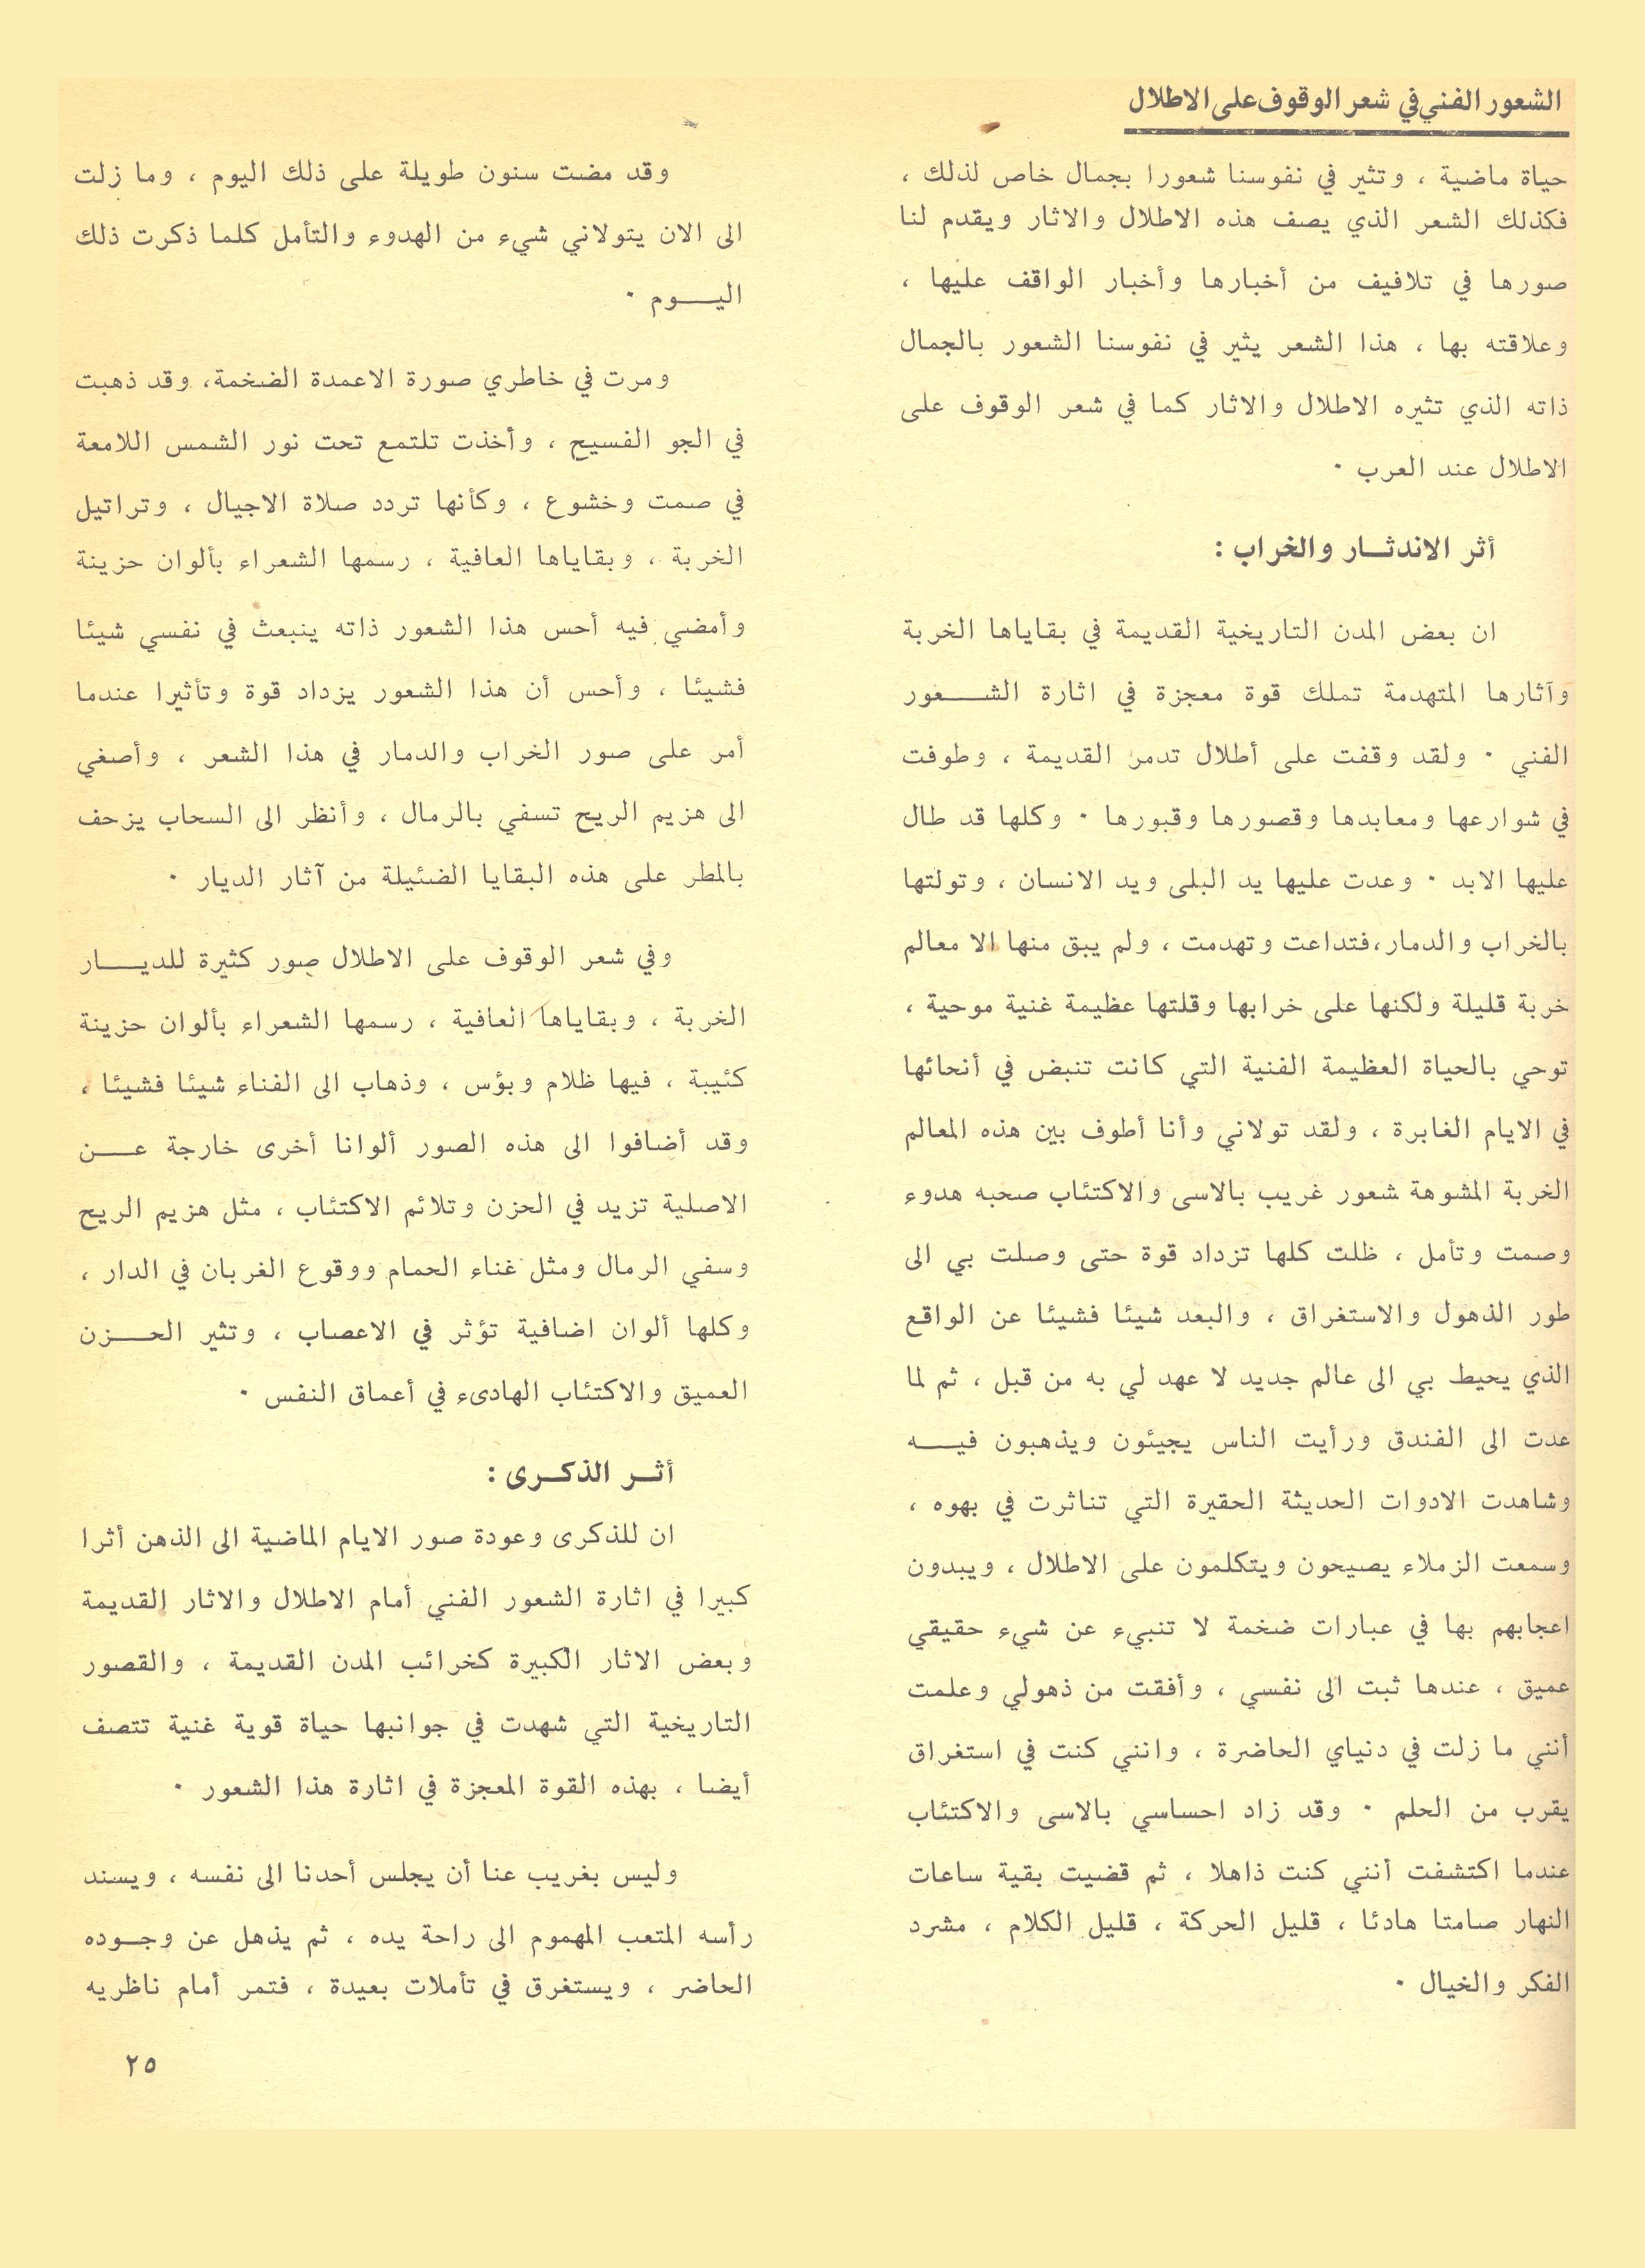 الشعور الفني في شعر الوقوف على الاطلال
حياة ماضية ، وتثير في نفوسنا شعورا بجمال خاص لذلك ،
فكذلك الشعر الذي يصف هذه الاطلال والاثار ويقدم لنا
صورها في تلافيف من أخبارها وأخبار الواقف عليها ،
وعلاقته بها ، هذا الشعر يثير في نفوسنا الشعور بالجمال
ذاته الذي تثيره الاطلال والاثار كما في شعر الوقوف على
الاطلال عند العرب ٠
أثر الاندثــار والخراب :
ان بعض المدن التاريخية القديمة في بقاياها الخربة
وآثارها المتهدمة تملك قوة معجزة في اثارة الشــــعور
الفني ٠ ولقد وقفت على أطلال تدمر القديمة ، وطوفت
في شوارعها ومعابدها وقصورها وقبورها ٠ وكلها قد طال
عليها الابد ٠ وعدت عليها يد البلى ويد الانسان ، وتولتها
بالخراب والدمار،فتداعت وتهدمت ، ولم يبق منها الا معالم
خربة قليلة ولكنها على خرابها وقلتها عظيمة غنية موحية ،
توحي بالحياة العظيمة الفنية التي كانت تنبض في أنحائها
في الايام الغابرة ، ولقد تولاني وأنا أطوف بين هذه المعالم
الخربة المشوهة شعور غريب بالاسى والاكتئاب صحبه هدوء
وصمت وتأمل ، ظلت كلها تزداد قوة حتى وصلت بي الى
طور الذهول والاستغراق ، والبعد شيئا فشيئا عن الواقع
الذي يحيط بي الى عالم جديد لا عهد لي به من قبل ، ثم لما
عدت الى الفندق ورأيت الناس يجيئون ويذهبون فيـــه
وشاهدت الادوات الحديثة الحقيرة التي تناثرت في بهوه ،
وسمعت الزملاء يصيحون ويتكلمون على الاطلال ، ويبدون
اعجابهم بها في عبارات ضخمة لا تنبيء عن شيء حقيقي
عميق ، عندها ثبت الى نفسي ، وأفقت من ذهولي وعلمت
أنني ما زلت في دنياي الحاضرة ، وانني كنت في استغراق
يقرب من الحلم ٠ وقد زاد احساسي بالاسى والاكتئاب
عندما اكتشفت أنني كنت ذاهلا ، ثم قضيت بقية ساعات
النهار صامتا هادئا ، قليل الحركة ، قليل الكلام ، مشرد
الفكر والخيال ٠
وقد مضت سنون طويلة على ذلك اليوم ، وما زلت
الى الان يتولاني شيء من الهدوء والتأمل كلما ذكرت ذلك
اليـــوم ٠
ومرت في خاطري صورة الاعمدة الضخمة، وقد ذهبت
في الجو الفسيح ، وأخذت تلتمع تحت نور الشمس اللامعة
في صمت وخشوع ، وكأنها تردد صلاة الاجيال ، وتراتيل
الخربة ، وبقاياها العافية ، رسمها الشعراء بألوان حزينة
وأمضي فيه أحس هذا الشعور ذاته ينبعث في نفسي شيئا
فشيئا ، وأحس أن هذا الشعور يزداد قوة وتأثيرا عندما
أمر على صور الخراب والدمار في هذا الشعر ، وأصغي
الى هزيم الريح تسفي بالرمال ، وأنظر الى السحاب يزحف
بالمطر على هذه البقايا الضئيلة من آثار الديار ٠
وفي شعر الوقوف على الاطلال صور كثيرة للديـــار
الخربة ، وبقاياها العافية ، رسمها الشعراء بألوان حزينة
كئيبة ، فيها ظلام وبؤس ، وذهاب الى الفناء شيئا فشيئا ،
وقد أضافوا الى هذه الصور ألوانا أخرى خارجة عـــن
الاصلية تزيد في الحزن وتلائم الاكتئاب ، مثل هزيم الريح
وسفي الرمال ومثل غناء الحمام ووقوع الغربان في الدار ،
وكلها ألوان اضافية تؤثر في الاعصاب ، وتثير الحـــزن
العميق والاكتئاب الهادىء في أعماق النفس ٠
أثــر الذكــرى :
ان للذكرى وعودة صور الايام الماضية الى الذهن أثرا
كبيرا في اثارة الشعور الفني أمام الاطلال والاثار القديمة
وبعض الاثار الكبيرة كخرائب المدن القديمة ، والقصور
التاريخية التي شهدت في جوانبها حياة قوية غنية تتصف
أيضا ، بهذه القوة المعجزة في اثارة هذا الشعور ٠
وليس بغريب عنا أن يجلس أحدنا الى نفسه ، ويسند
رأسه المتعب المهموم الى راحة يده ، ثم يذهل عن وجــوده
الحاضر ، ويستغرق في تأملات بعيدة ، فتمر أمام ناظريه
٢٥